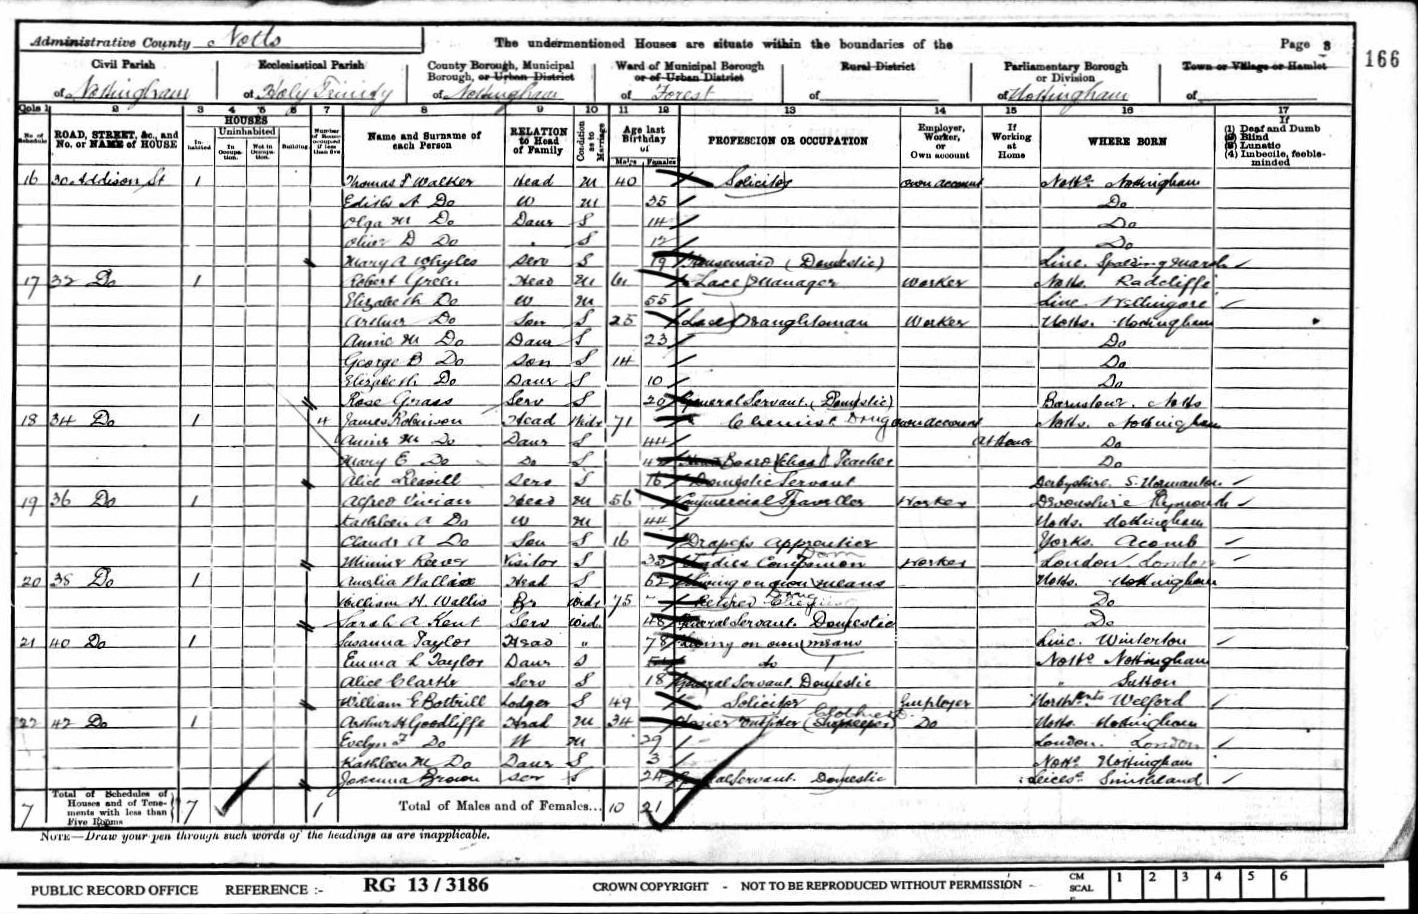 Administrative County Notts
The undermentioned Houses are situate within the boundaries of the
Page 8
166
Civil Parish
of Nottingham
Ecclesiastical Parish
of Holy Trinity
County Borough, Municipal Borough, or Urban District
of Nottingham
Ward of Municipal Borough or of Urban District
of Forest
Rural District
of
Parliamentary Borough or Division
of Nottingham
Town or Village or Hamlet
of
Cols 1 2 3 4 5 6 7 8 9 10 11 12 13 14 15 16 17
No. of Schedule
ROAD, STREET, &c., and No. or NAME of HOUSE
HOUSES
Inhabited
Uninhabited
In Occupation.
Not in Occupation.
Building
Number of Rooms occupied if less than five
Name and Surname of each Person
RELATION to Head of Family
Condition as to Marriage
Age last Birthday of
Males Females
PROFESSION OR OCCUPATION
Employer, Worker, or Own account
If Working at Home
WHERE BORN
If (1) Deaf and Dumb (2) Blind (3) Lunatic (4) Imbecile, feeble-minded
16 30 Addison St 1 Thomas F Walker Head M 40 Solicitor own account Notts. Nottingham
Edith A Do W M 35 Do
Olga M Do Daur S 14 Do
Olive D Do S 12 Do
Mary A Whyles Serv S 19 Housemaid (Domestic) Linc. Spalding Marsh
17 32 Do 1 Robert Green Head M 61 Lace Manager Worker Notts. Radcliffe
Elizabeth Do W M 55 Linc. Wellingore
Arthur Do Son S 25 Lace Draughtsman Worker Notts. Nottingham
Annie M Do Daur S 23 Do
George B Do Son S 14 Do
Elizabeth Do Daur S 10 Do
Rose Grass Serv S 20 General Servant (Domestic) Notts
18 34 Do 1 4 James Robinson Head Widr 71 Chemist Drug own account Notts. Nottingham
Annie M Do Daur S 44 At Home Do
Mary E Do Do S Board School Teacher Do
Alice S 16 Domestic Servant Derbyshire S. Normanton
19 36 Do 1 Alfred Vivian Head M 56 Commercial Traveller Worker Devonshire Plymouth
Kathleen A Do W M 44 Notts. Nottingham
Claude A Do Son S 16 Drapers Apprentice Yorks. Acomb
Minnie Reeves Visitor S Ladies Companion Dom Worker London London
20 38 Do 1 Amelia Wallis Head S 62 Living on own means Notts. Nottingham
William H. Wallis Br Widr 75 Retired Do
Sarah A Kent Serv Wid. 48 General Servant. Domestic Do
21 40 Do 1 Susanna Taylor Head " 78 Living on own means Linc. Winterton
Emma L Taylor Daur S do Notts Nottingham
Alice Clarke Serv S 18 General Servant. Domestic " Sutton
William E Bottrill Lodger S 49 Solicitor Employer Northants Welford
22 42 Do 1 Arthur H Goodliffe Head M 34 Hosier Outfitter (Shopkeeper) Clothier Do Notts. Nottingham
Evelyn F Do W M 29 London. London
Kathleen M Do Daur S 3 Notts Nottingham
Johanna Brown Ser S 24 General Servant. Domestic Leices.
7 Total of Schedules of Houses and of Tenements with less than Five Rooms 7 1 Total of Males and of Females... 10 21
NOTE—Draw your pen through such words of the headings as are inapplicable.
PUBLIC RECORD OFFICE REFERENCE :- RG 13 / 3186 CROWN COPYRIGHT - NOT TO BE REPRODUCED WITHOUT PERMISSION - CM SCAL 1 2 3 4 5 6